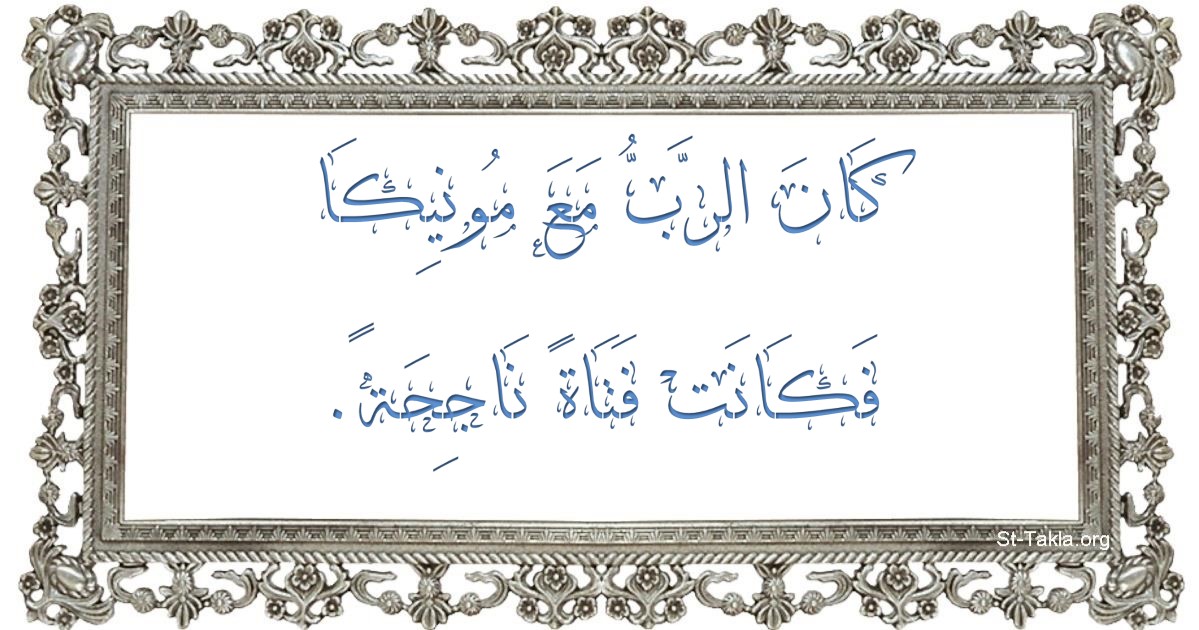 كَانَ الرَّبُّ مَعَ مُونِيكَا
فَكَانَت فَتَاةً نَاجِحَةً.
St-Takla.org